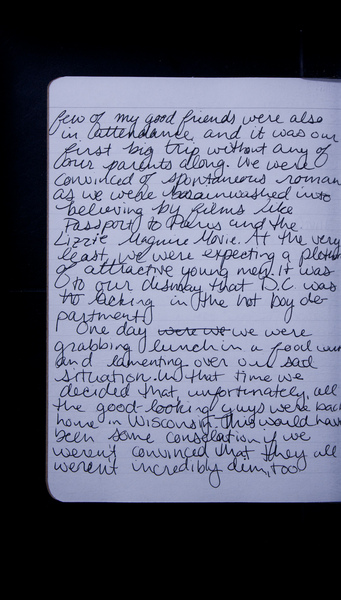 few of my good friends were also
in attendance, and it was our
first big trip without any of
our parents along. We were
convinced of spontaneous roman
as we were brainwashed into
believing by films like
Passport to Paris and the
Lizzie Mcguire Movie. At the very
least, we were expecting a
of attractive young men. It was
to our dismay that D.C. was
lacking in the hot boy de-
partment.
One day were we we were
grabbing lunch in a food
and lamenting over our sad
situation. In that time we
decided that, unfortunately, all
the good-looking guys were back
home in Wisconsin. This would have
been some consolation if we
weren't convinced that they all
weren't incredibly dim, too